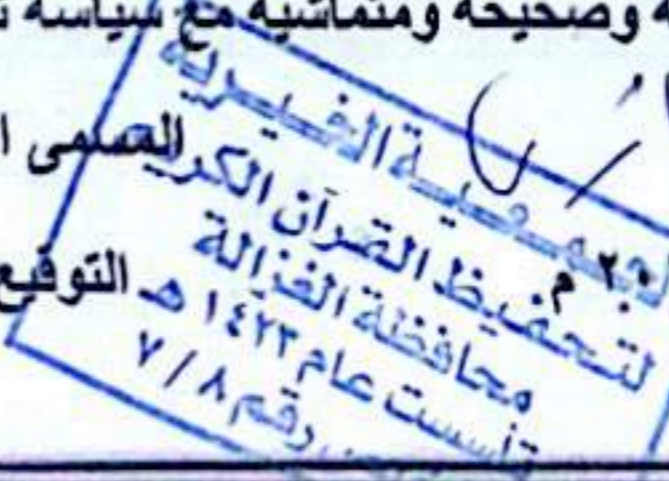 وصحيحة ومتماشية مع سياسة
المسمى
التوقيع
الجمعية الخيرية
لتحفيظ القرآن الكريم
محافظة الغزالة
تأسست عام ١٤٢٣ هـ
رقم ٧/٨